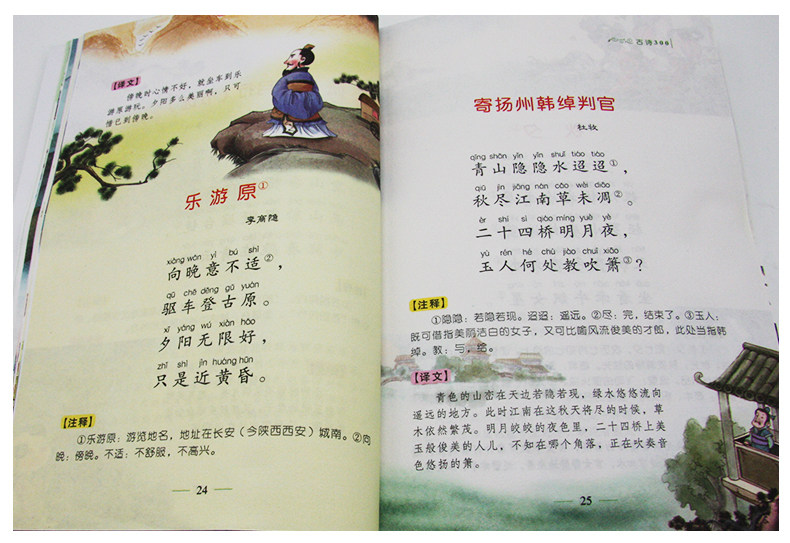 【译文】
傍晚时心情不好，就坐车到乐
游原游玩。夕阳多么美丽啊，只可
惜已到傍晚。
乐游原①
李商隐
xiàng wǎn yì bú shì
向晚意不适②，
qū chē dēng gǔ yuán
驱车登古原。
xī yáng wú xiàn hǎo
夕阳无限好，
zhǐ shì jìn huáng hūn
只是近黄昏。
【注释】
①乐游原：游览地名，地址在长安（今陕西西安）城南。②向
晚：傍晚。不适：不舒服，不高兴。
24
古诗300
寄扬州韩绰判官
杜牧
qīng shān yǐn yǐn shuǐ tiáo tiáo
青山隐隐水迢迢①，
qiū jìn jiāng nán cǎo wèi diāo
秋尽江南草未凋②。
èr shí sì qiáo míng yuè yè
二十四桥明月夜，
yù rén hé chù jiào chuī xiāo
玉人何处教吹箫③？
【注释】
①隐隐：若隐若现。迢迢：遥远。②尽：完，结束了。③玉人：
既可借指美丽洁白的女子，又可比喻风流俊美的才郎，此处当指韩
绰。教：与，给。
【译文】
青色的山峦在天边若隐若现，绿水悠悠流向
遥远的地方。此时江南在这秋天将尽的时候，草
木依然繁茂。明月皎皎的夜色里，二十四桥上美
玉般俊美的人儿，不知在哪个角落，正在吹奏音
色悠扬的箫。
25